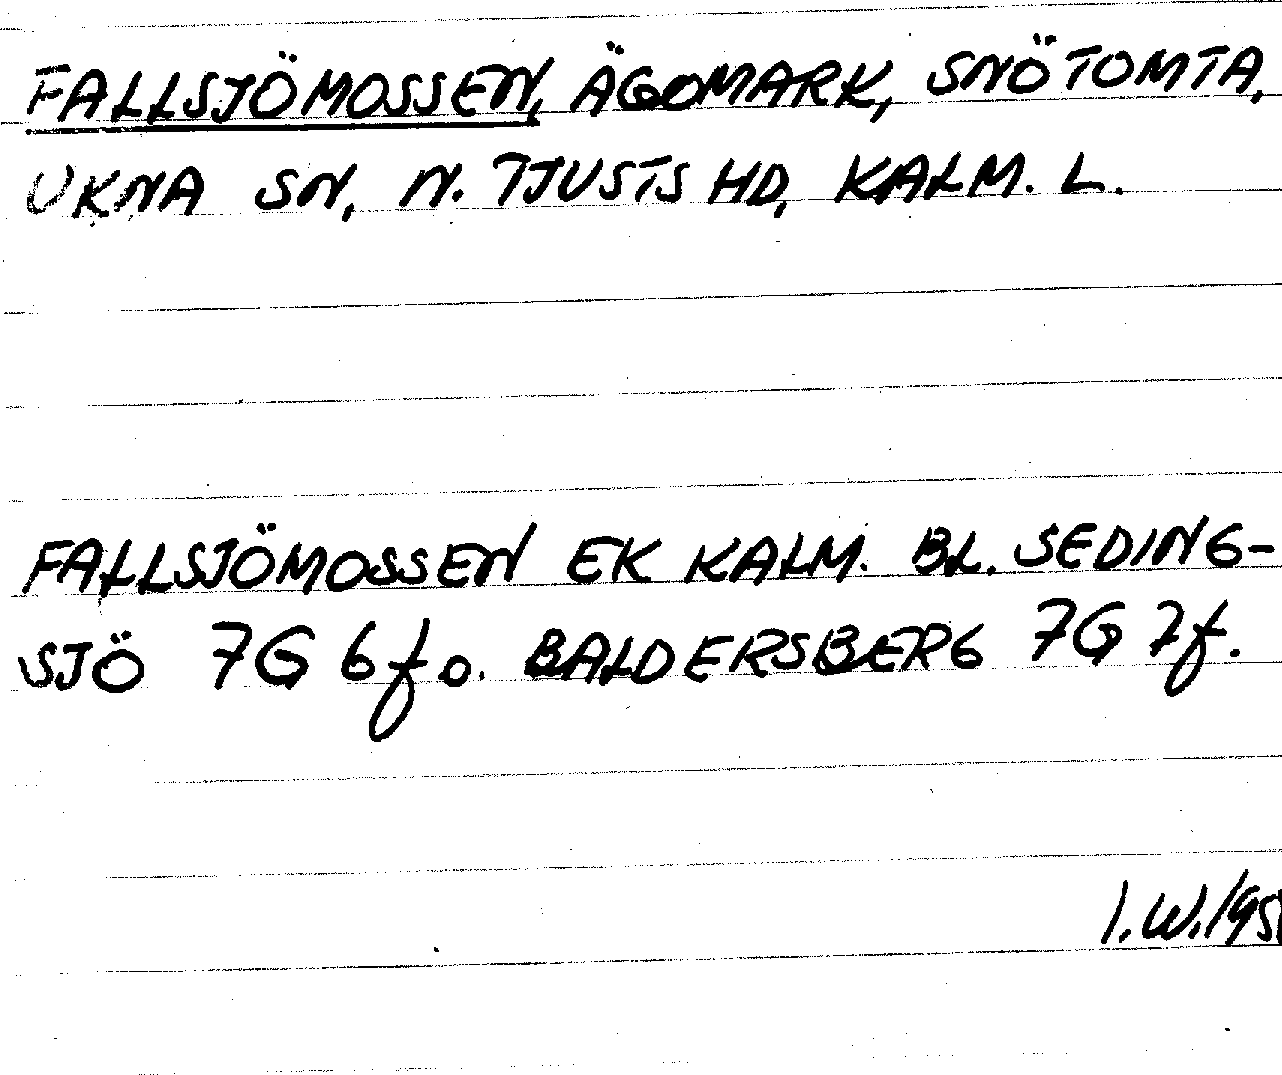 FALLSJÖMOSSEN, ÄGOMARK, SNÖTOMTA,
UKNA SN, N. TJUSTS HD, KALM. L.
FALLSJÖMOSSEN EK KALM. BL. SEDING-
SJÖ 7G 6f o. BALDERSBERG 7G 7f.
I.W.